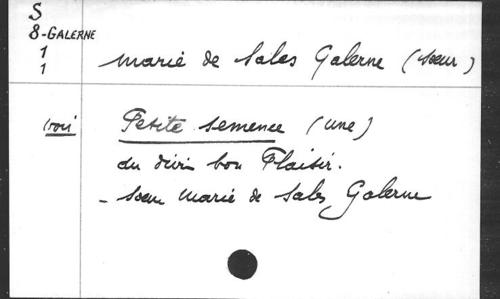 S
8-GALERNE
1
1
Marie de Sales Galerne (sœur)
voir
Petite semence (une)
du divin bon Plaisir.
- sœur Marie de Sales Galerne